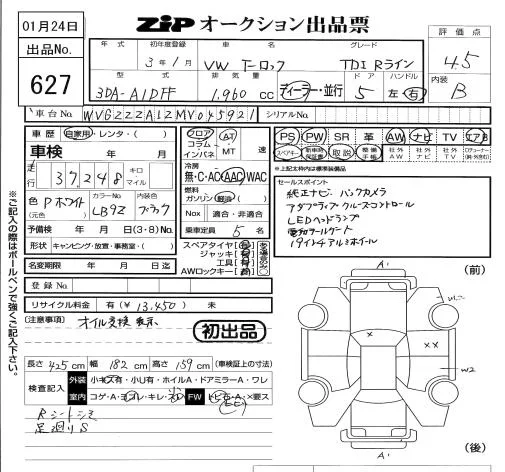 01月24日
出品No.
627
ZiP オークション出品票
年式 初年度登録 車名 グレード
3年1月 VW T-ロック TDI Rライン
型式 排気量 ドア ハンドル
3DA-A1DFF 1,960 cc ディーラー・並行 5 左・右
評価点
4.5
内装
B
車台No. WVGZZZA1ZMV045921 シリアルNo.
車歴 自家用・レンタ・( )
車検 年 月
走行 37,248 キロ マイル
色 Pホワイト カラーNo. LB9Z 内装色 ブラック
(元色)
予備検 年 月 日(3・8)No.
形状 キャンピング・放置・事務室・( )
名変期限 年 月 日迄
登録No.
リサイクル料金 有(¥ 13,450 ) 未
フロア コラム インパネ AT MT 速
冷房
無・C・AC・AAC・WAC
燃料
ガソリン・軽油( )
Nox 適合・非適合
乗車定員 5 名
スペアタイヤ
ジャッキ
工具
AWロックキー
PS PW SR 革 AW ナビ TV エアB
スペアキー 新車時保証書 取説 整備手帳 社外AW 社外ナビ 社外TV
*上記太枠内は標準装備品
セールスポイント
純正ナビ. バックカメラ
アダプティブクルーズコントロール
LEDヘッドランプ
電動テールゲート
19インチアルミホイール
(注意事項)
オイル交換表示
初出品
長さ 425cm 幅 182cm 高さ 159cm (車検証上の寸法)
検査記入
外装 小キズ有・小凹有・ホイルA・ドアミラーA・ワレ
室内 コゲ・A・ヨゴレ・キレ・スレ FW トビ石・A・×要ス
Rシートシミ
足廻りS
※ご記入の際はボールペンで強くご記入下さい。
(前)
A1
×
××
W2
A1
(後)